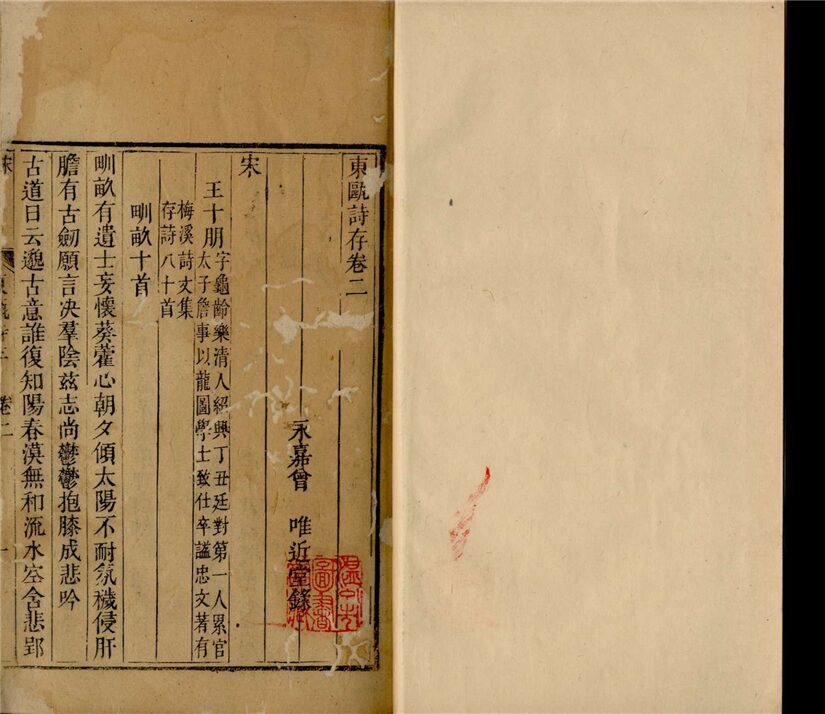 東甌詩存卷二
永嘉曾 唯近堂錄
宋
王十朋字龜齡樂清人紹興丁丑廷對第一人累官
太子詹事以龍圖學士致仕卒謚忠文著有
梅溪詩文集
存詩八十首
甽畝十首
甽畝有遺士妄懷葵藿心朝夕傾太陽不耐氛穢侵肝
膽有古劒願言决羣陰玆志尚鬱鬱抱膝成悲吟
古道日云邈古意誰復知陽春漠無和流水空含悲郢
宋
卷二
一